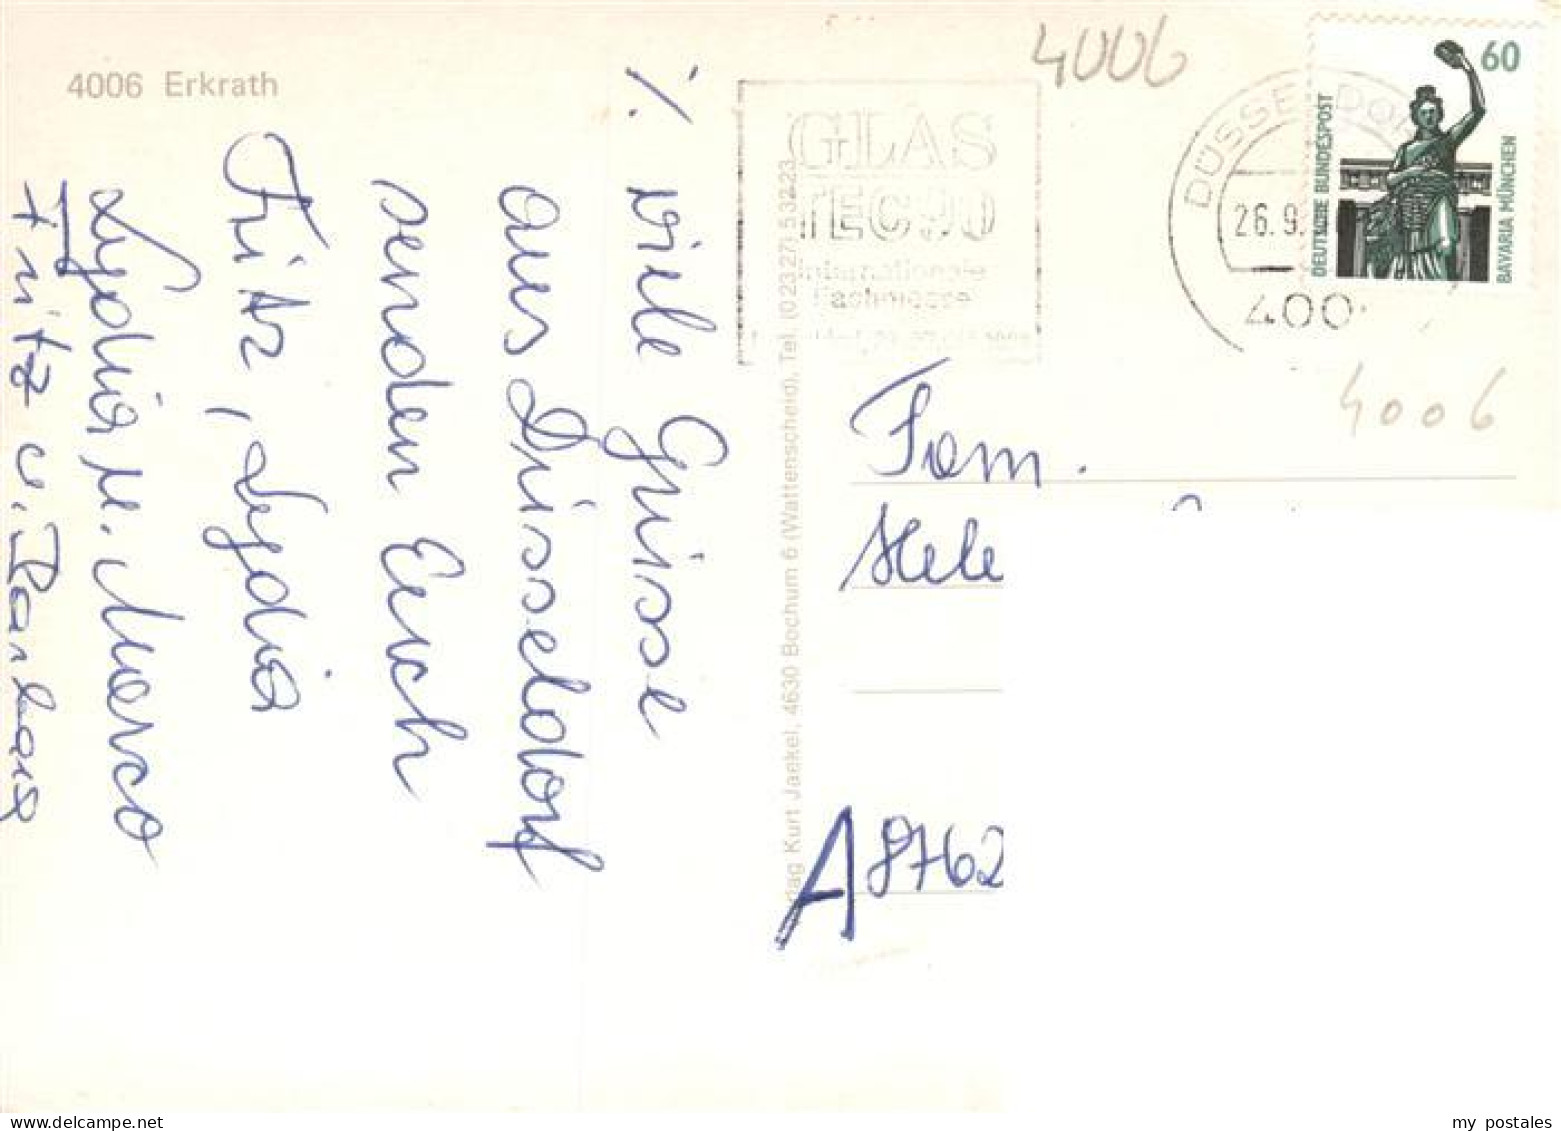 4006 Erkrath
4006
GLAS
TEC 90
Internationale
Fachmesse
DÜSSELDORF
26.9.
400
60
DEUTSCHE BUNDESPOST
BAVARIA MÜNCHEN
4006
Viele Grüsse
aus Düsseldorf
senden Euch
Fritz, Lydia
Lydia u. Marco
Fritz u. Barbara
Kurt Jaekel, 4630 Bochum 6 (Wattenscheid), Tel. (02327) 53223
Fam.
Hele
A 8762
my postales